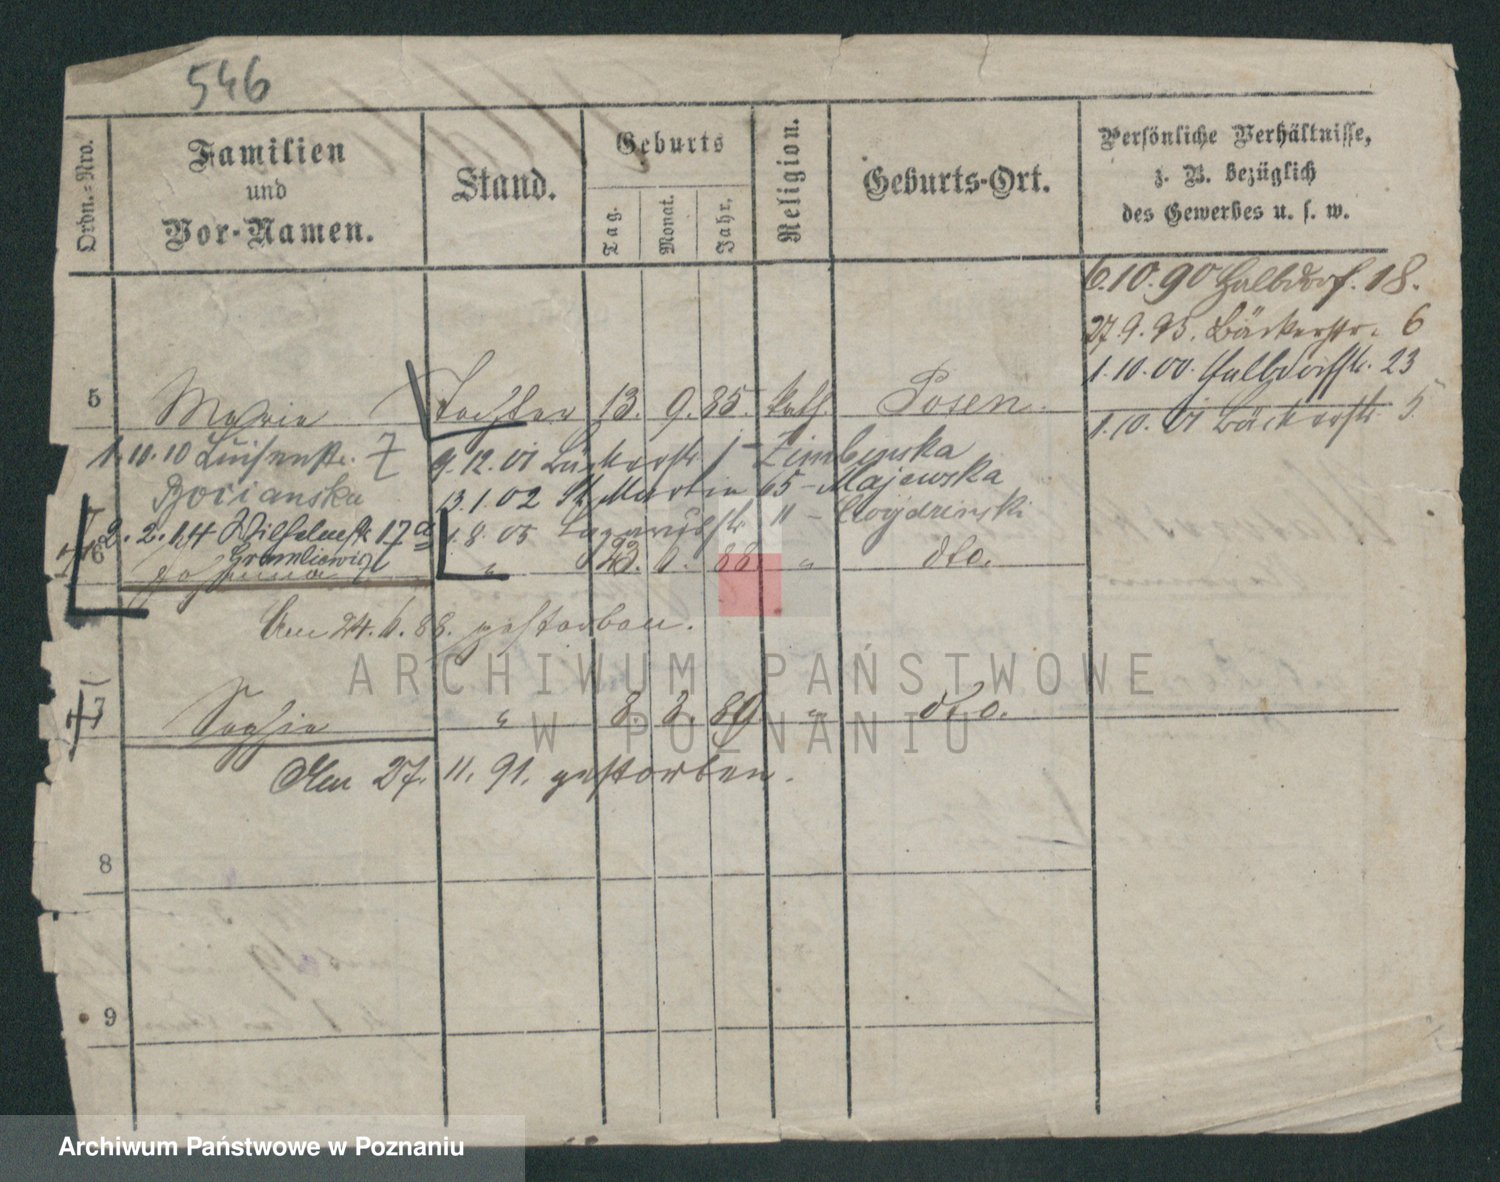 546
Ordn.-Nro.
Familien
und
Vor-Namen.
Stand.
Geburts
Tag.
Monat.
Jahr.
Religion.
Geburts-Ort.
Persönliche Verhältnisse,
z. B. bezüglich
des Gewerbes u. s. w.
6.10.90 Halbdorf. 18.
27.9.95. Bäckerstr. 6
1.10.00. Halbdorfstr. 23
1.10.01 Bäckerstr. 5
5 Marie Tochter 13. 9. 85. kath. Posen.
1.10.10 Luisenstr. 7
9.12.01 Bäckerstr. Zimbinska
Bocianska
13.1.02 St. Martin 65 - Majewska
2.2.14 Wilhelmstr. 17a
1.8.05 11 -
Gramlewicz
" 23. 88. " dto.
Am 24. 6. 88. gestorben.
Sophie " 8. 8. 89. " dto.
Am 27. 11. 91. gestorben.
8
9
ARCHIWUM PAŃSTWOWE
W POZNANIU
Archiwum Państwowe w Poznaniu